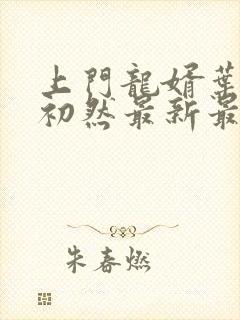 上門龍婿葉
初然最新最
朱春燃